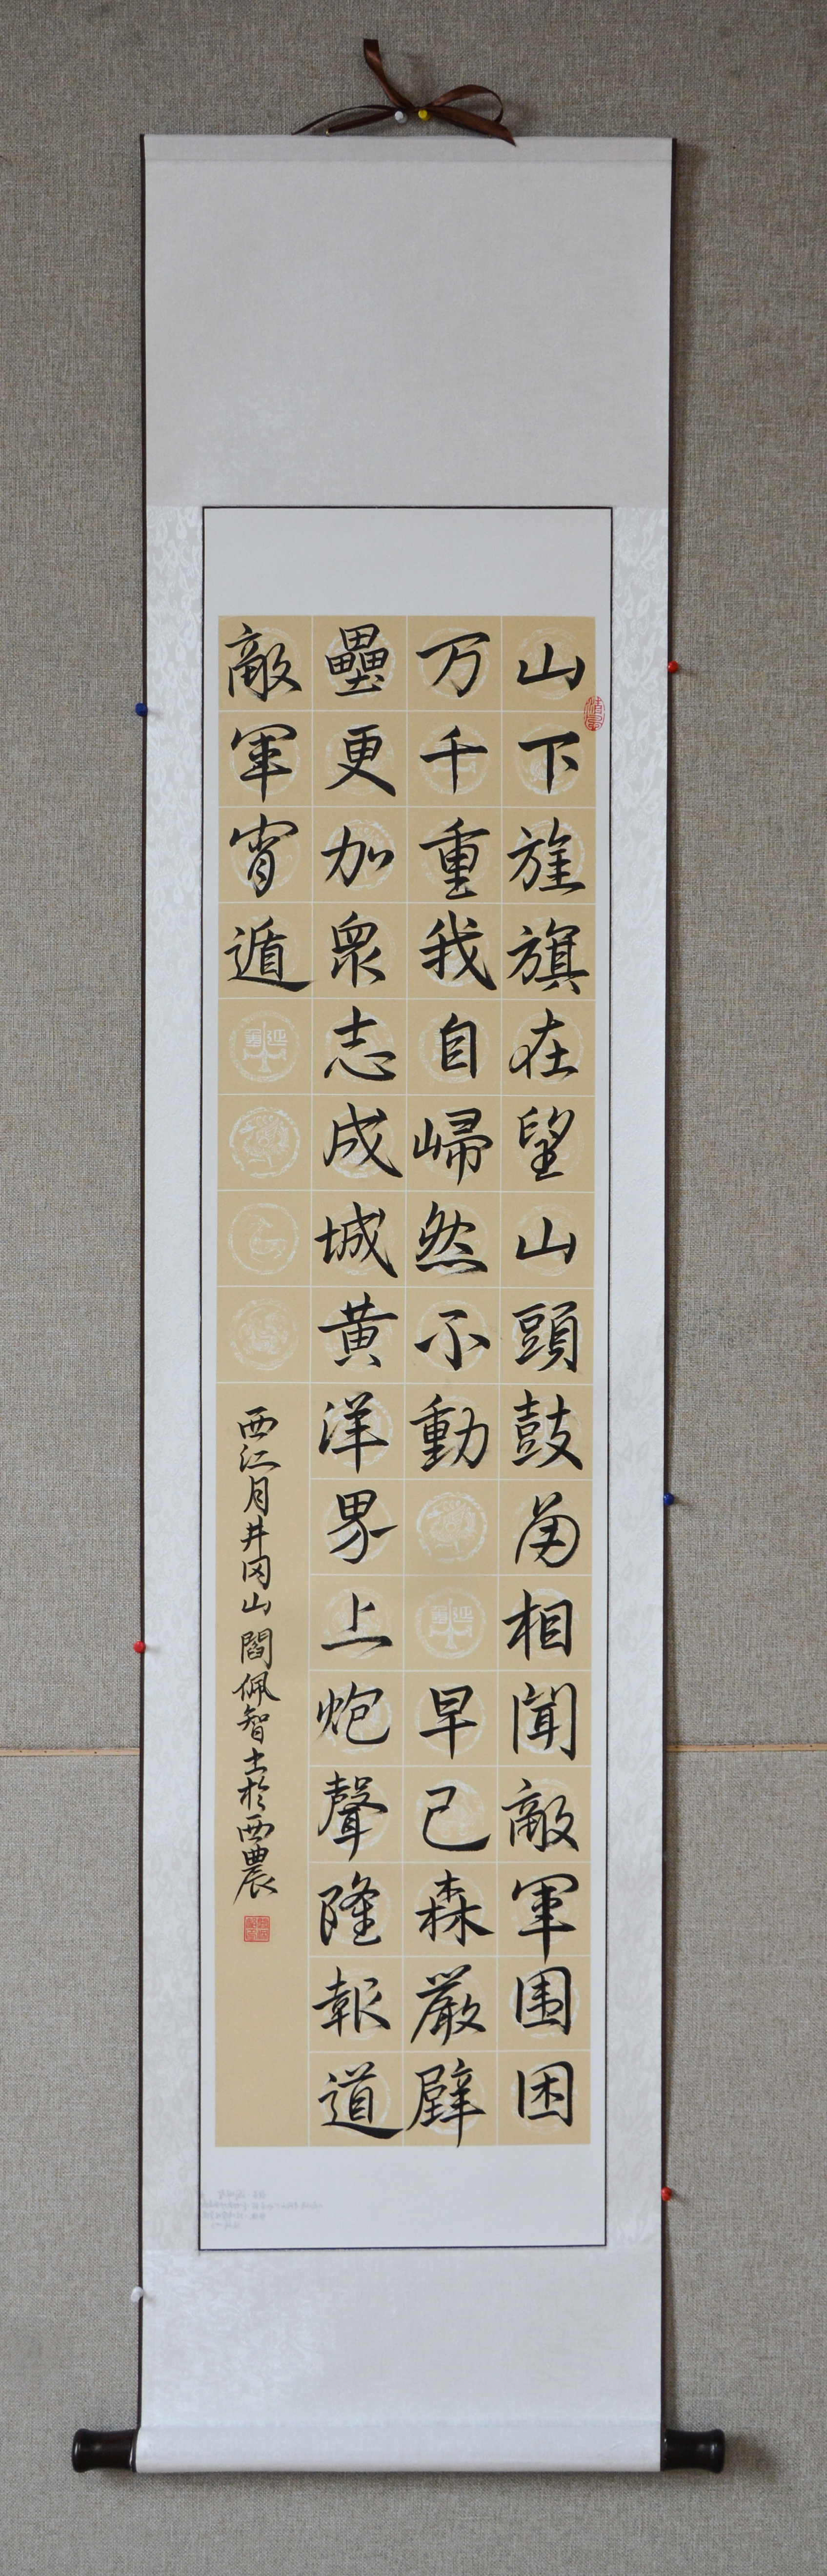 山下旌旗在望山頭鼓角相聞敵軍围困
万千重我自歸然不動早已森嚴壁
壘更加衆志成城黄洋界上炮聲隆報道
敵軍宵遁
西江月井冈山 閻佩智书於西農